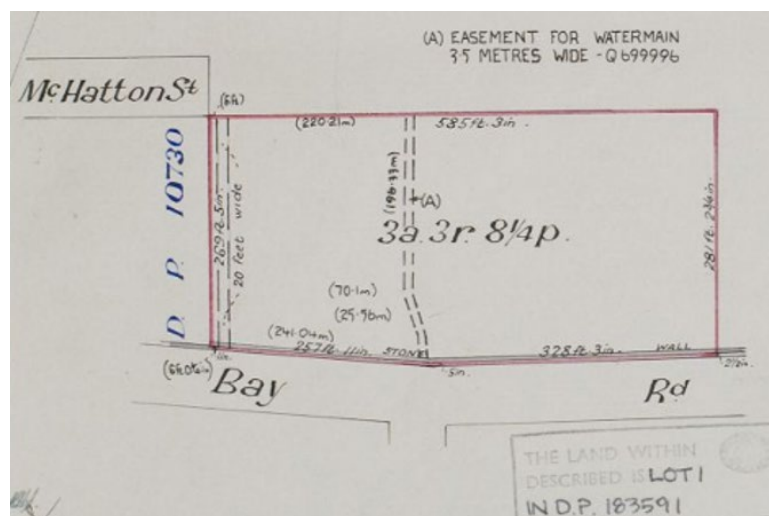 (A) EASEMENT FOR WATERMAIN
3·5 METRES WIDE - Q699996
McHatton St
(6ft)
(220·21m)
585ft. 3in.
D. P. 10730
269ft. 5in.
20 feet wide
(198·33m)
(A)
3a. 3r. 8¼p.
281ft.
(70·1m)
(25·56m)
(241·04m)
257ft. 11in.
STONE
328ft. 3in.
WALL
1in.
5in.
2½in.
Bay
Rd
THE LAND WITHIN
DESCRIBED IS LOT 1
IN D.P. 183591